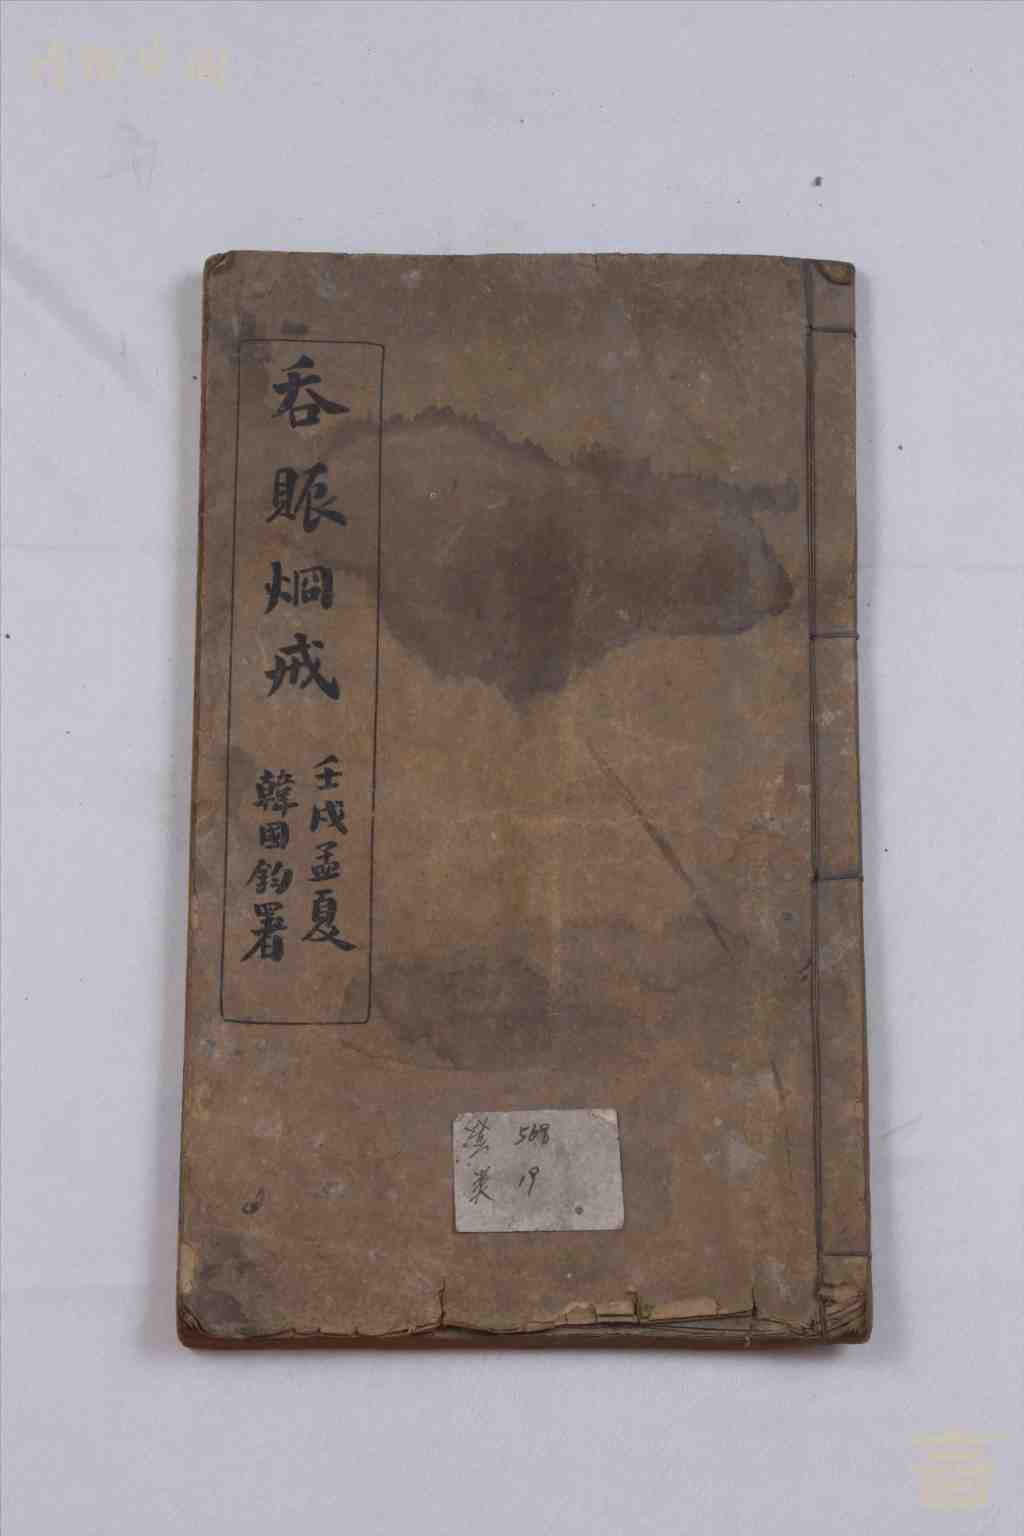 吞賑炯戒
壬戌孟夏
韓國鈞署
568
类 19